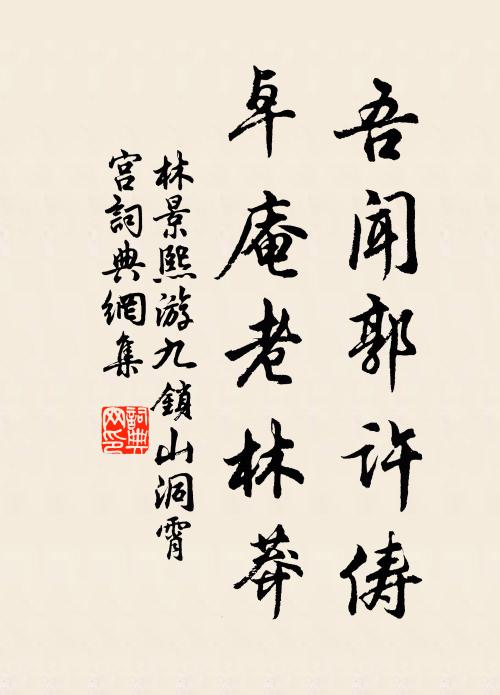 吾聞郭许俦
卓庵老林莽
林景熙游九鎖山洞霄
宫詞典網集
詞典網印